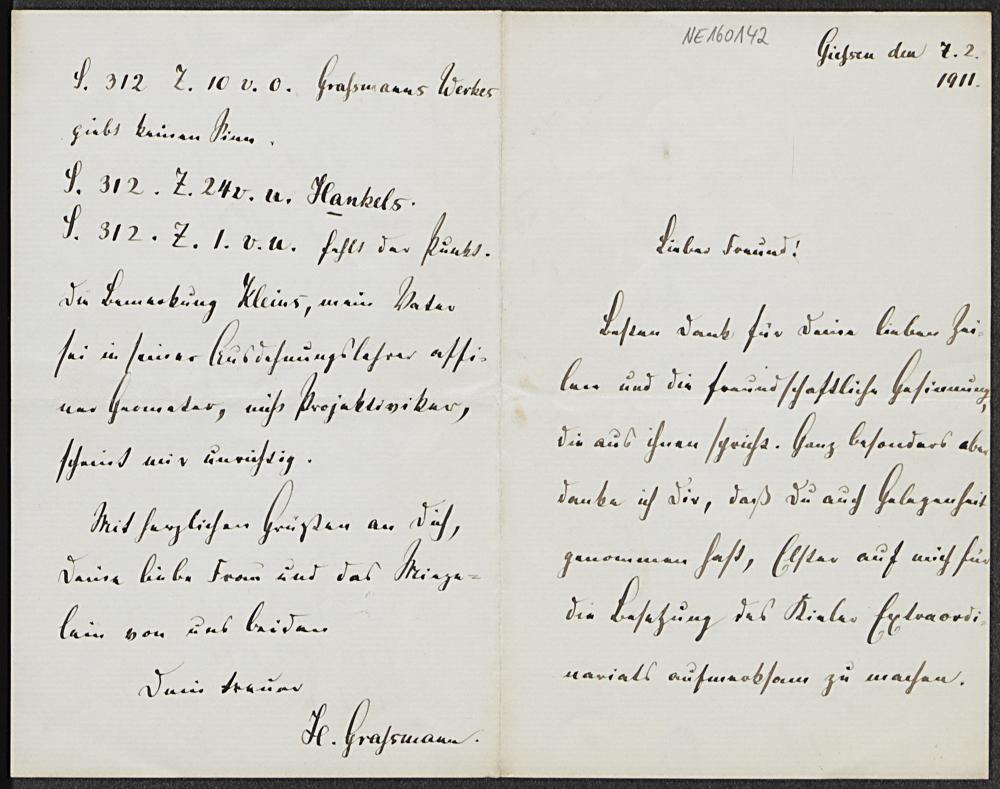 NE160142
Gießen den 7. 2.
1911.
Lieber Freund!
Besten Dank für Deine lieben Zei-
len und die freundschaftliche Gesinnung,
die aus ihnen spricht. Ganz besonders aber
danke ich Dir, daß Du auch Gelegenheit
genommen hast, Elster auf mich für
die Besetzung des Kieler Extraordi-
nariats aufmerksam zu machen.
S. 312 Z. 10 v. o. Graßmanns Werkes
giebt keinen Sinn.
S. 312. Z. 24 v. u. Hankels.
S. 312. Z. 1. v. u. fehlt der Punkt.
Die Bemerkung Kleins, mein Vater
sei in seiner Ausdehnungslehrer affi-
ner Geometer, nicht Projektiviker,
scheint mir unrichtig.
Mit herzlichen Grüßen an Dich,
Deine liebe Frau und das Mieze-
lein von uns beiden
Dein treuer
H. Graßmann.